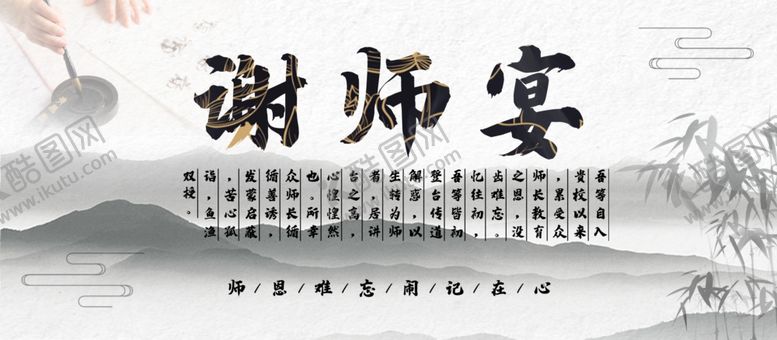 谢师宴
吾等自入
贵校以来
，累受众
师长教育
之恩，没
齿难忘。
忆往初，
吾等皆初
登台传道
解惑，以
生转为师
者，居讲
台之高，
心惶惶然
也。所幸
众师长循
循善诱，
发蒙启蔽
，苦心孤
诣，鱼渔
双授。
师/恩/难/忘/闹/记/在/心
酷图网
www.ikutu.com